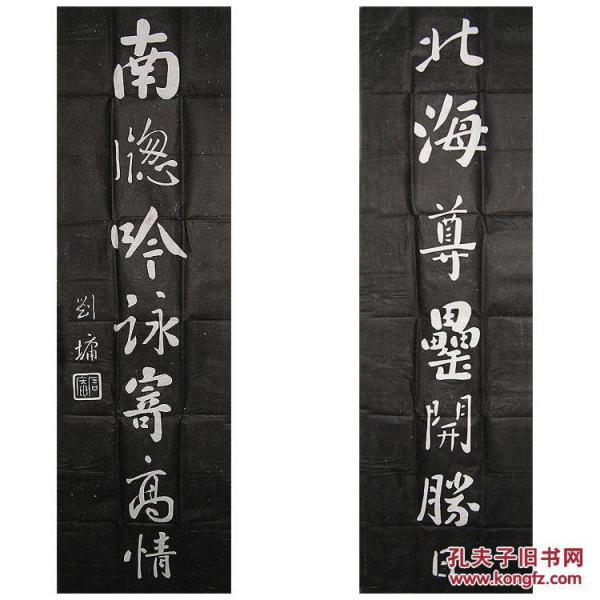 北海尊罍開勝日
南牎吟詠寄高情
劉墉
孔夫子旧书网
www.kongfz.com